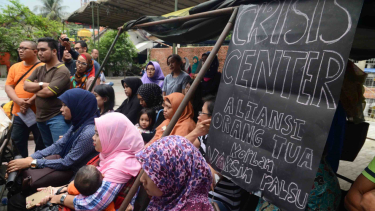 CRISIS
CENTER
ALIANSI
ORANG TUA
KORBAN
VAKSIN PALSU